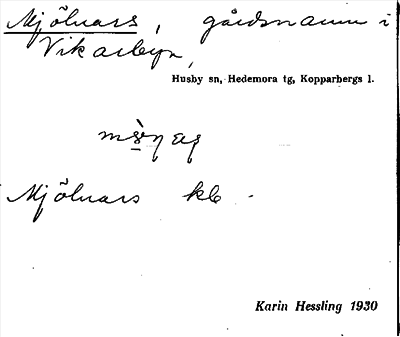 Mjölnars, gårdsnamn i
Vikarbyn,
Husby sn, Hedemora tg, Kopparbergs l.
Mjölnars kb -
Karin Hessling 1930